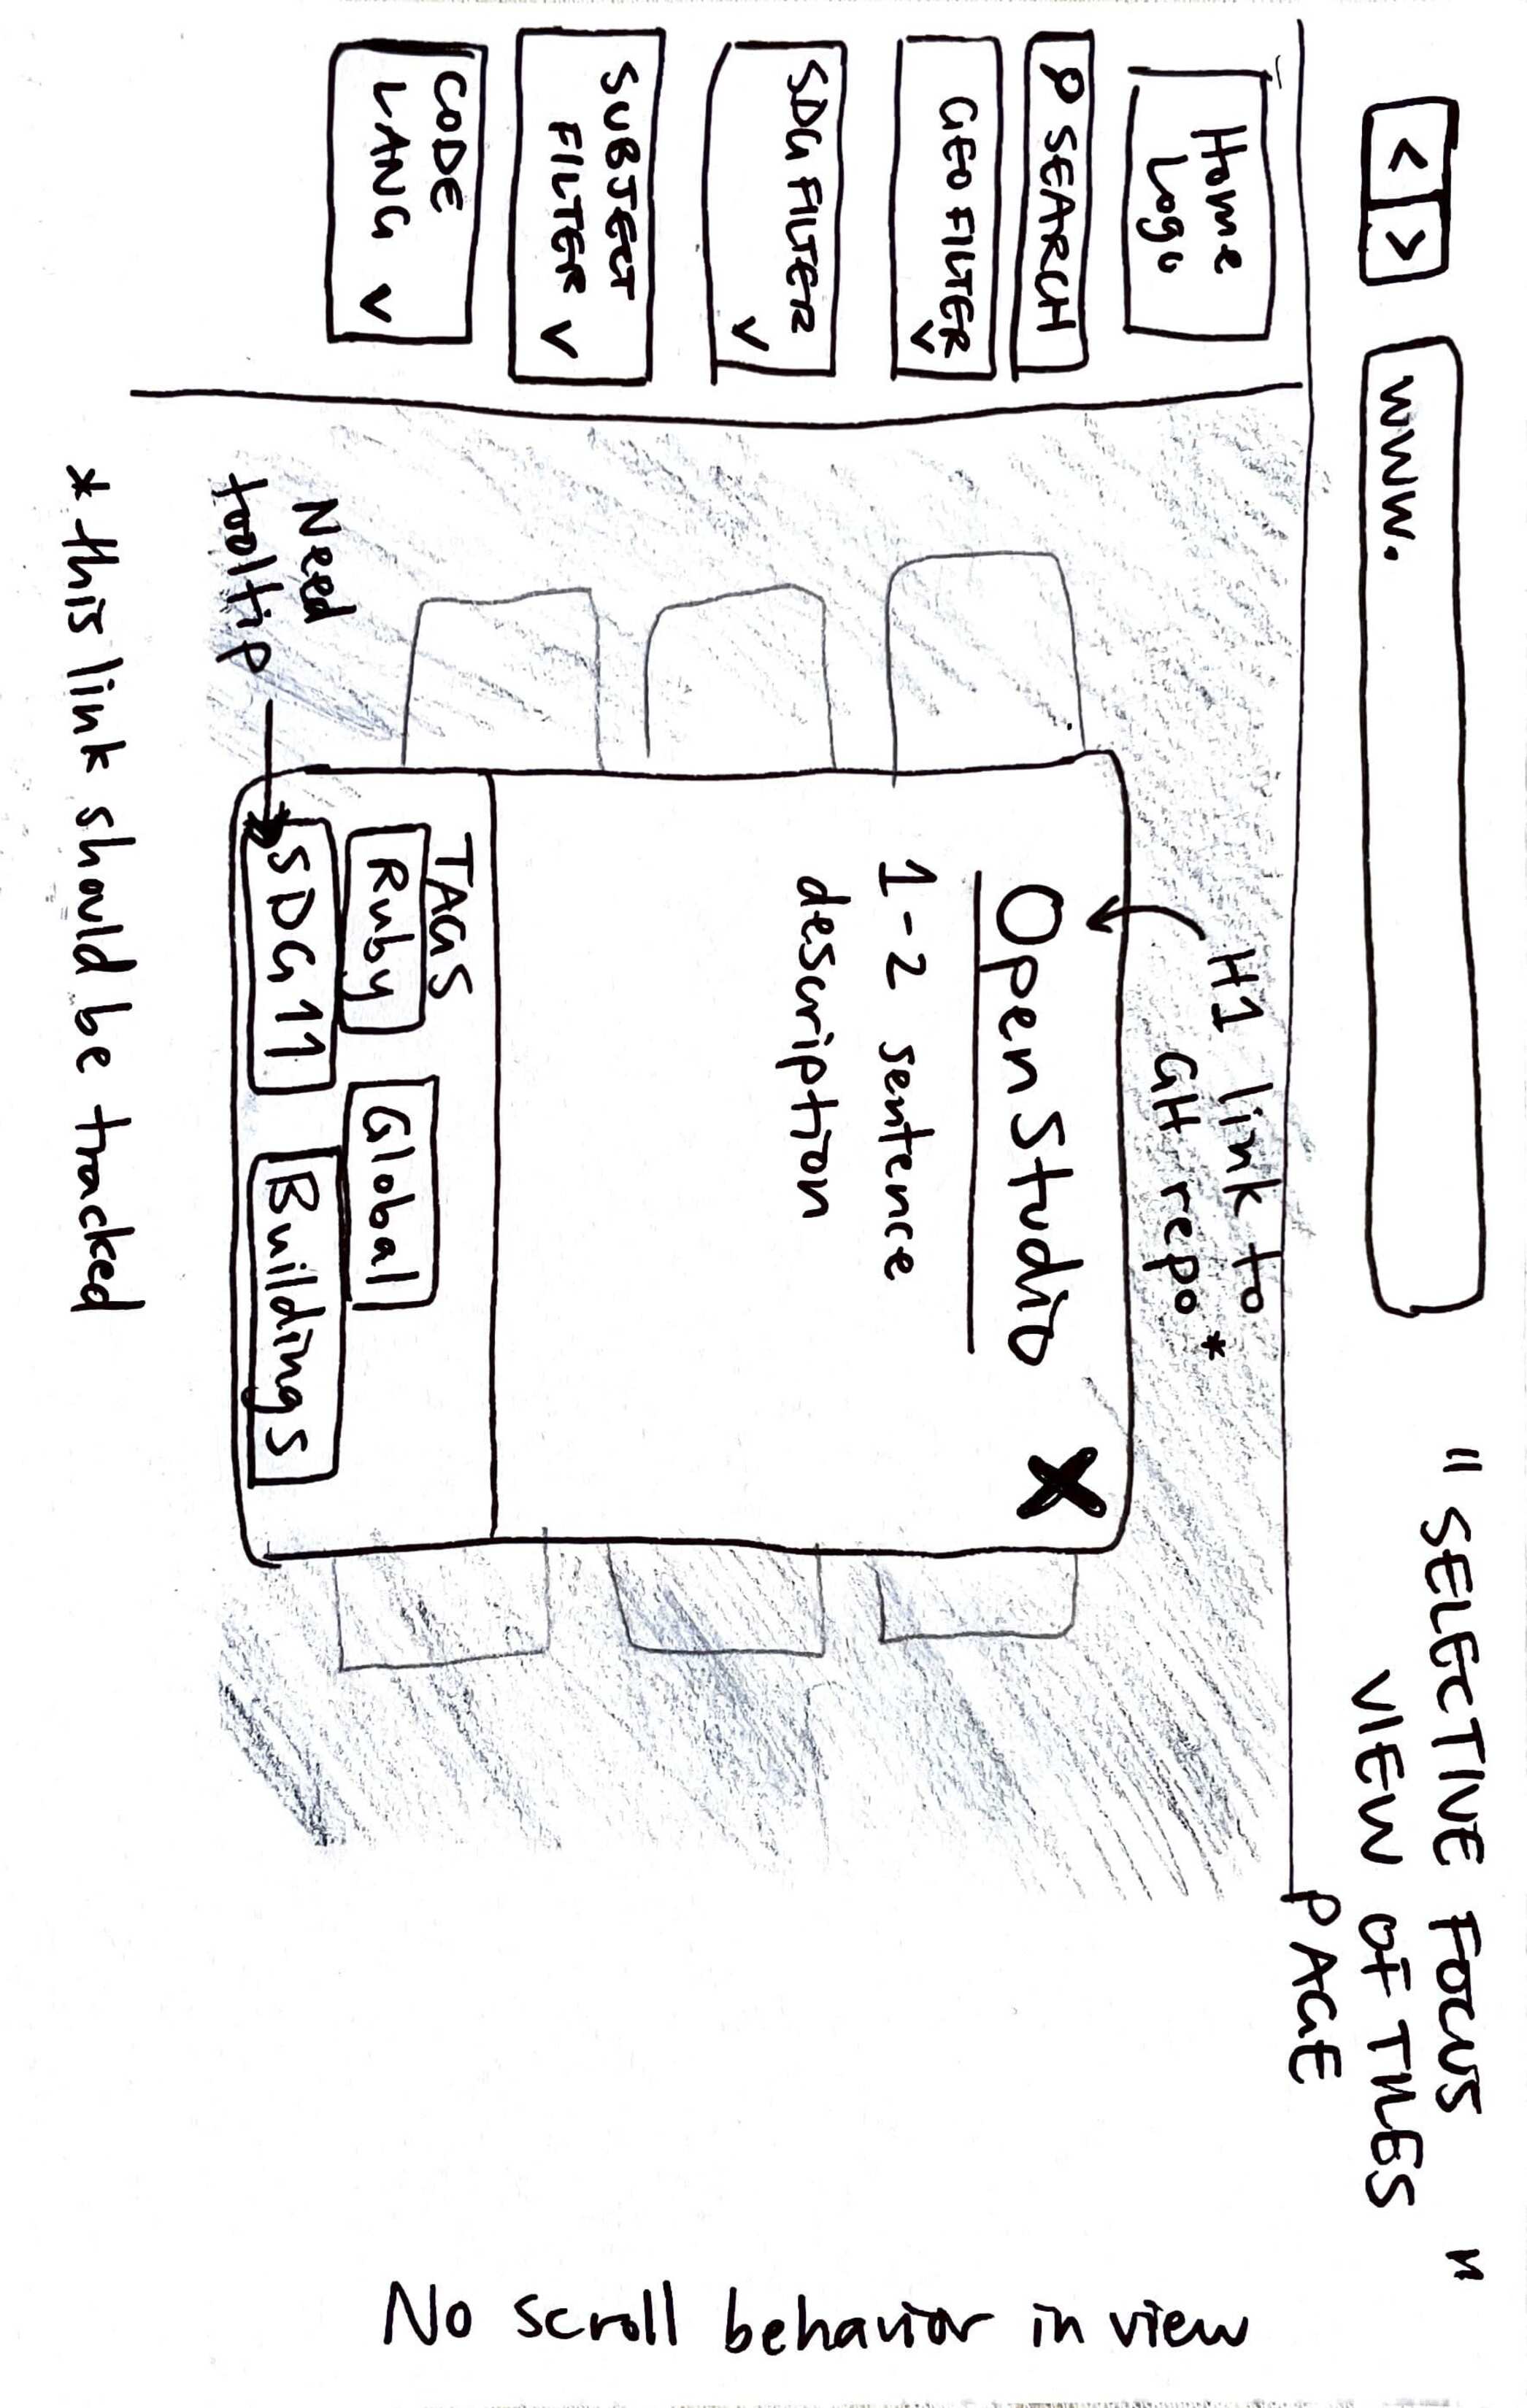 < >
www.
" SELECTIVE FOCUS "
VIEW OF TILES
PAGE
Home
Logo
SEARCH
GEO FILTER
SDG FILTER
SUBJECT
FILTER
CODE
LANG
H1 link to
GH repo *
OpenStudio X
1-2 sentence
description
TAGS
Ruby Global
SDG 11 Buildings
Need
tooltip
* this link should be tracked
No scroll behavior in view